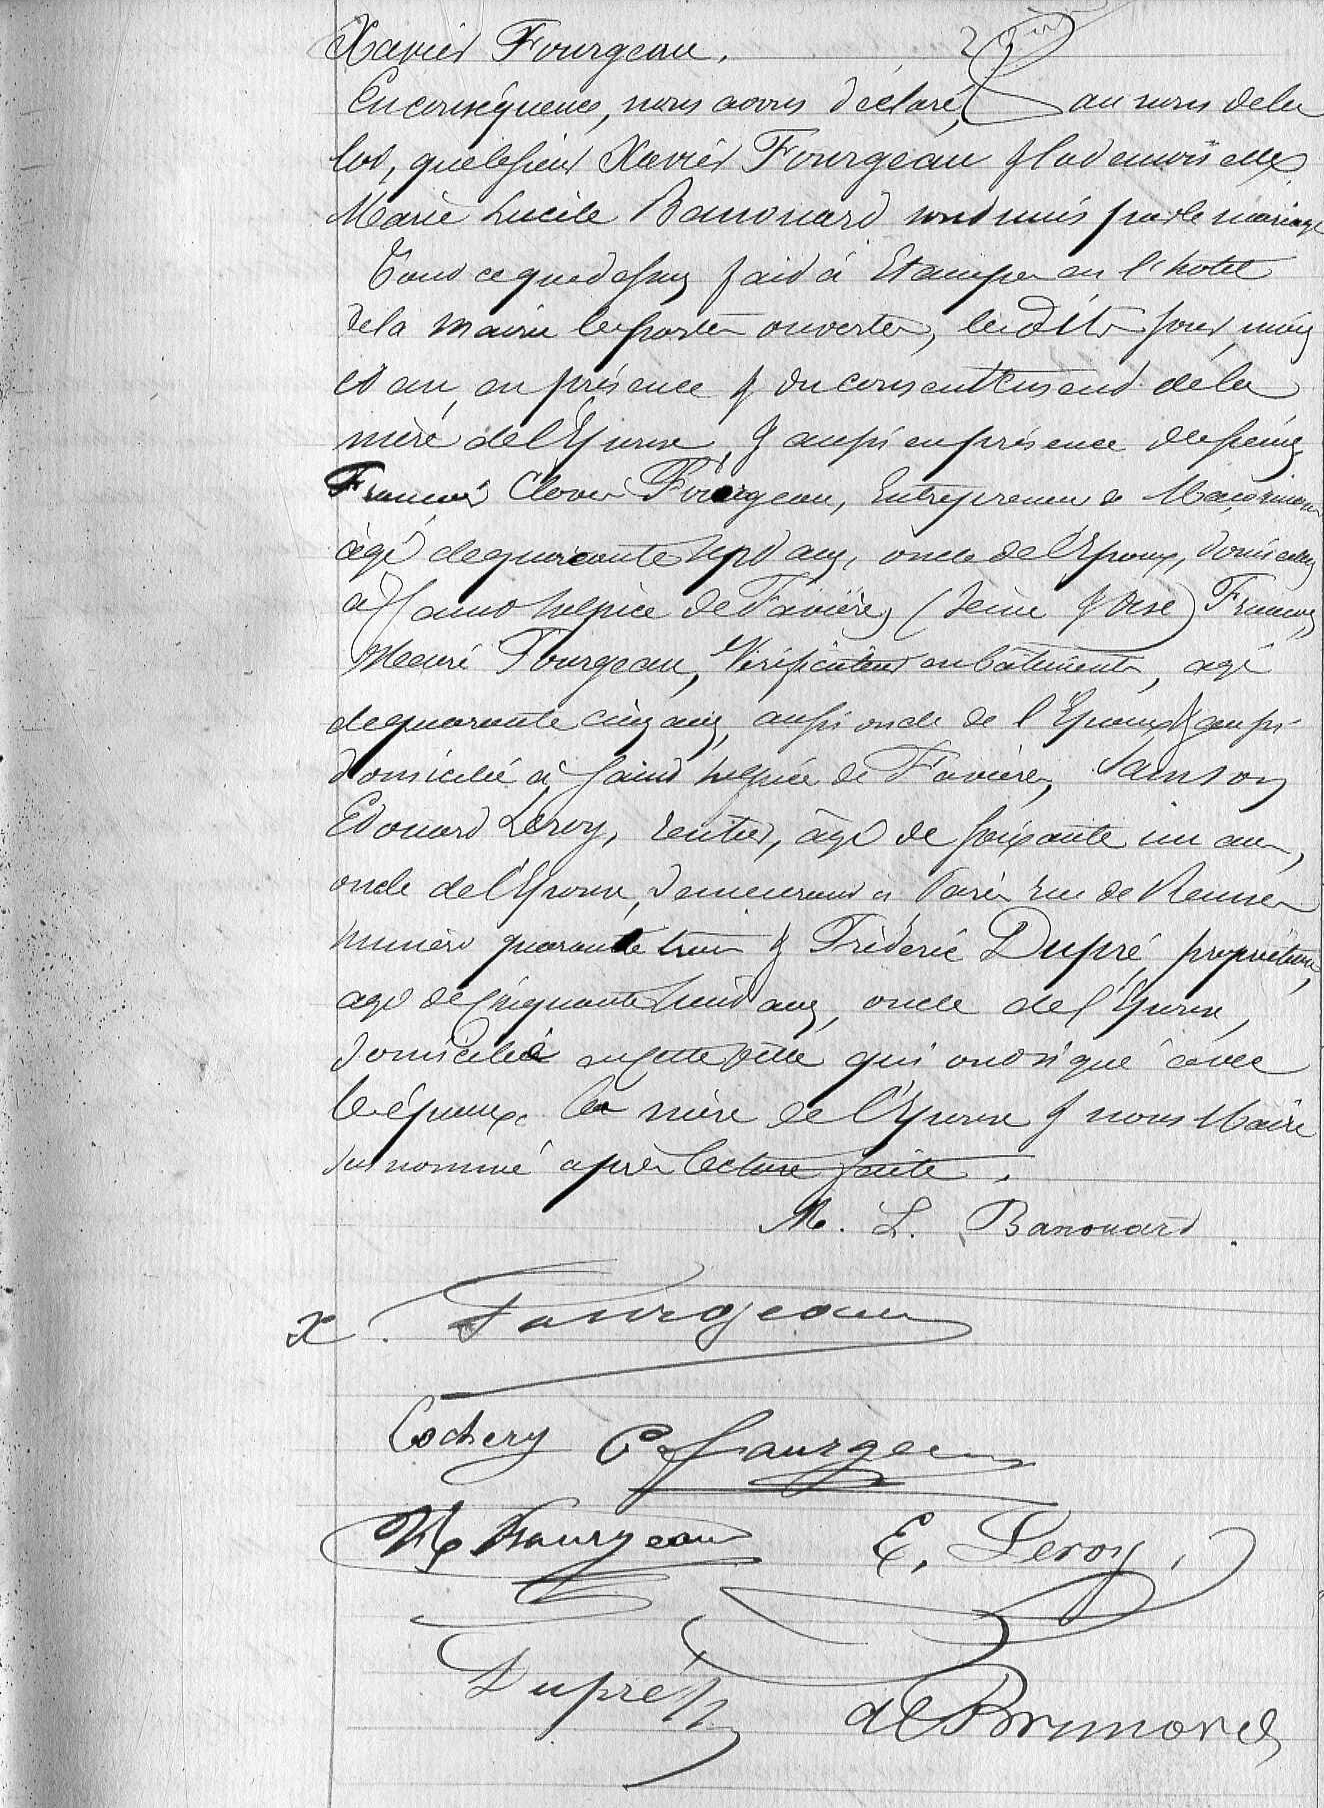 Xavier Fourgeau.
En conséquence, nous avons déclaré, au nom de la
loi, que le sieur Xavier Fourgeau & la demoiselle
Marie Lucile Banouard sont unis par le mariage
Tout ce que dessus fait à Etampes en l'hotel
de la Mairie les portes ouvertes, lesdits jour, mois
et an, en présence & du consentement de la
mère de l'Epouse, & aussi en présence des sieurs
François Clovis Fourgeau, Entrepreneur de Maçonnerie
âgé de quarante sept ans, oncle de l'Epoux, domicilié
à Saint Sulpice de Favières (Seine & Oise) François
Mearé Fourgeau, Vérificateur en bâtiments, agé
de quarante cinq ans, aussi oncle de l'Epoux & aussi
domicilié à Saint Sulpice de Favières, Samson
Edouard Leroy, rentier, âgé de soixante un ans,
oncle de l'Epouse, demeurant à Paris rue de Rennes
numéro quarante trois & Fréderic Dupré, propriétaire,
agé de cinquante huit ans, oncle de l'Epouse,
domicilié en cette ville qui ont signé avec
les époux, la mère de l'Epouse & nous Maire
susnommé après lecture faite.
M. L. Banouard.
X. Fourgeau
Cochery C. fourgeau
M Fourgeau E. Leroy.
Dupré
de Brimoré